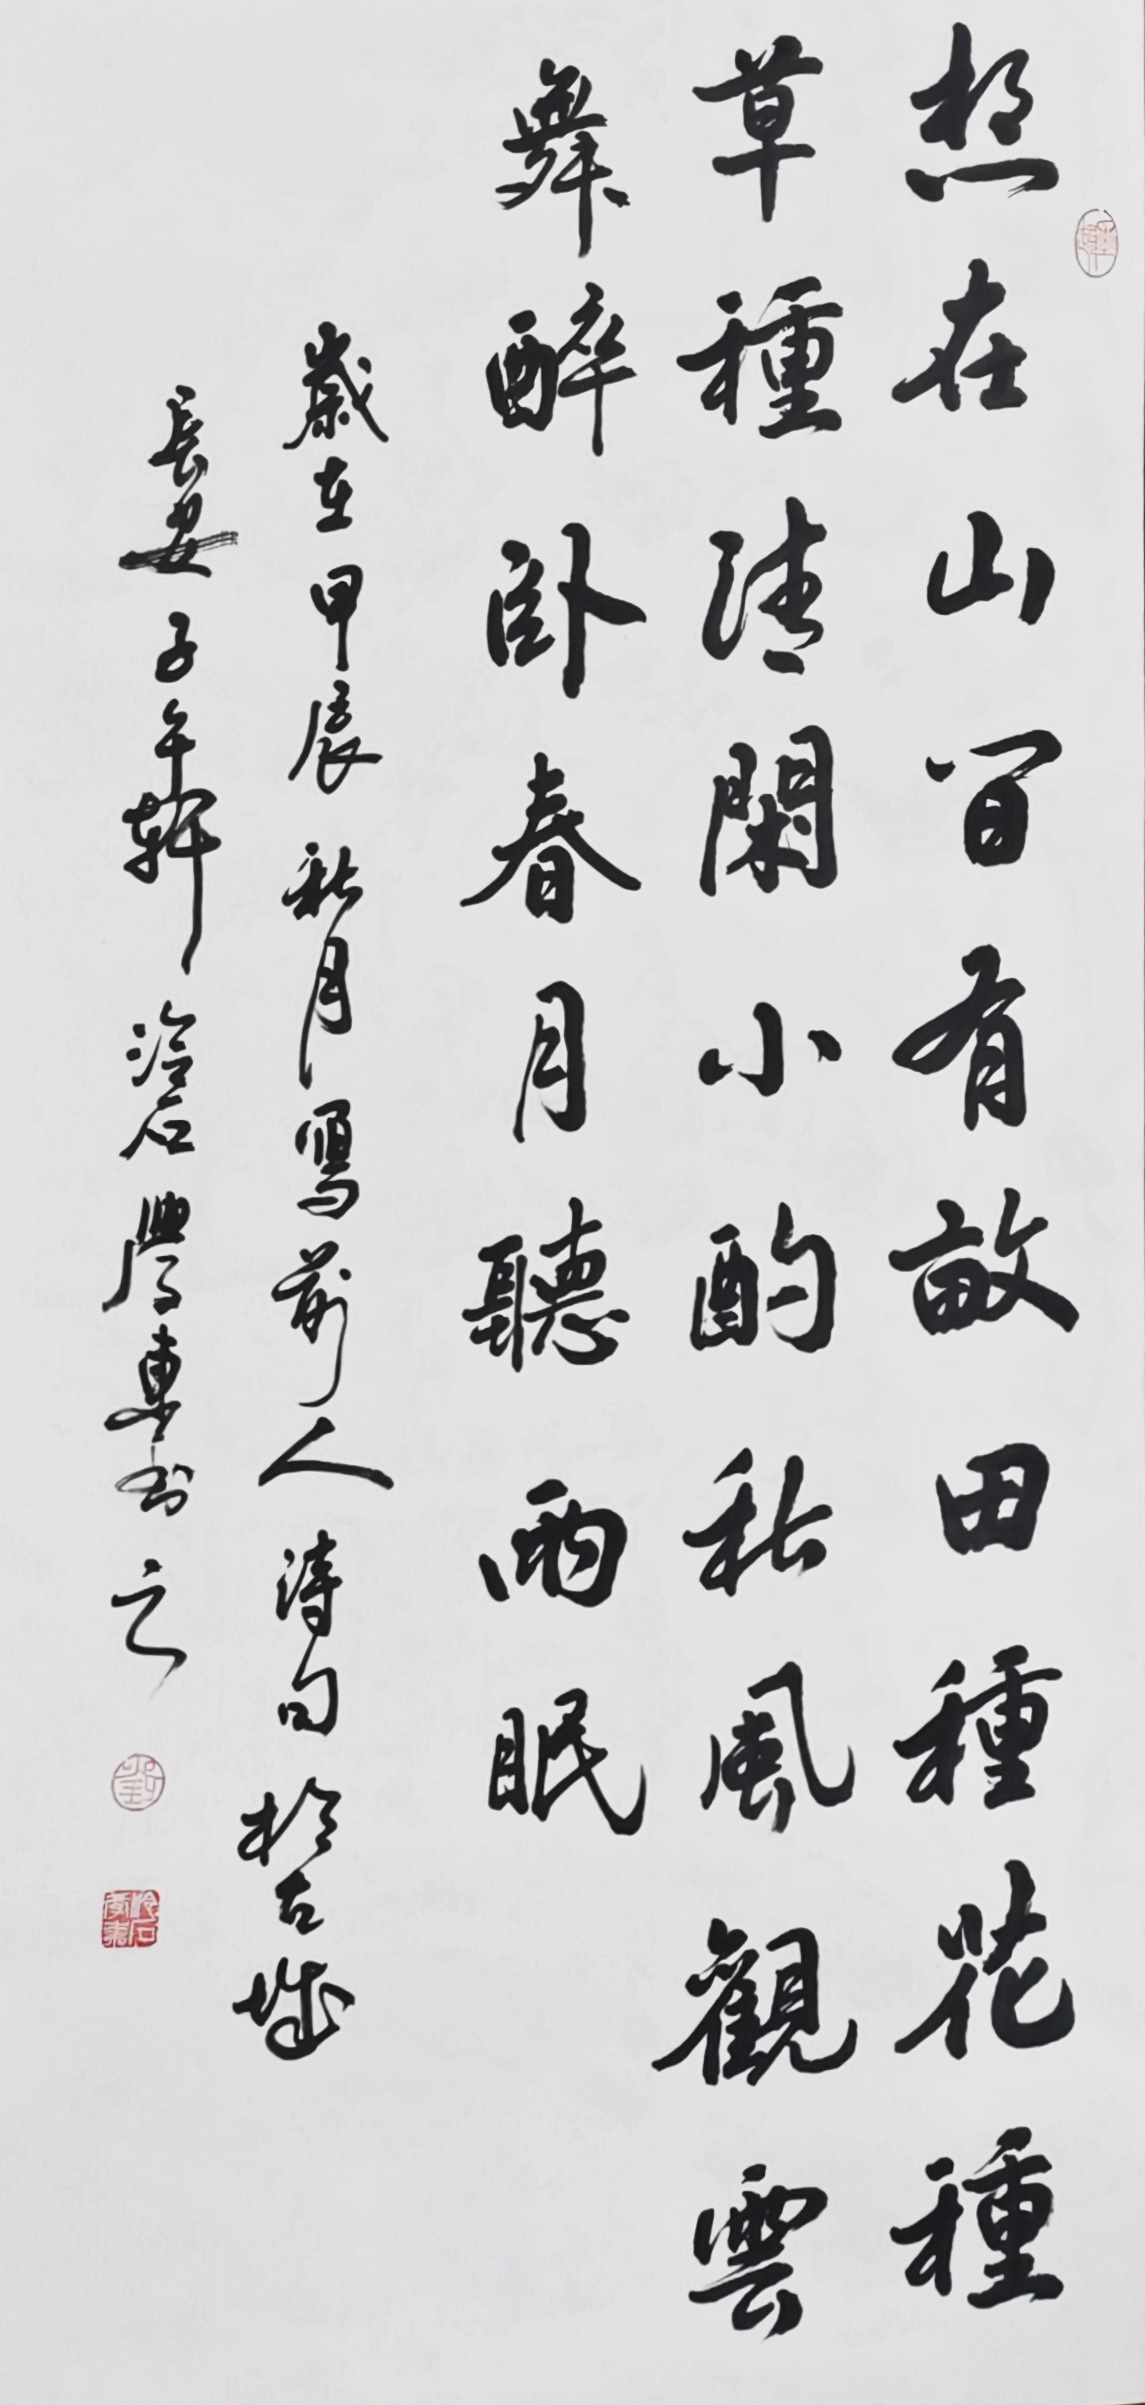 想在山間有畝田種花種
草種清閑小酌秋風觀雲
舞醉卧春月聽雨眠
歲在甲辰秋月寫前人詩句於古城
長安子午軒冷石學東書之